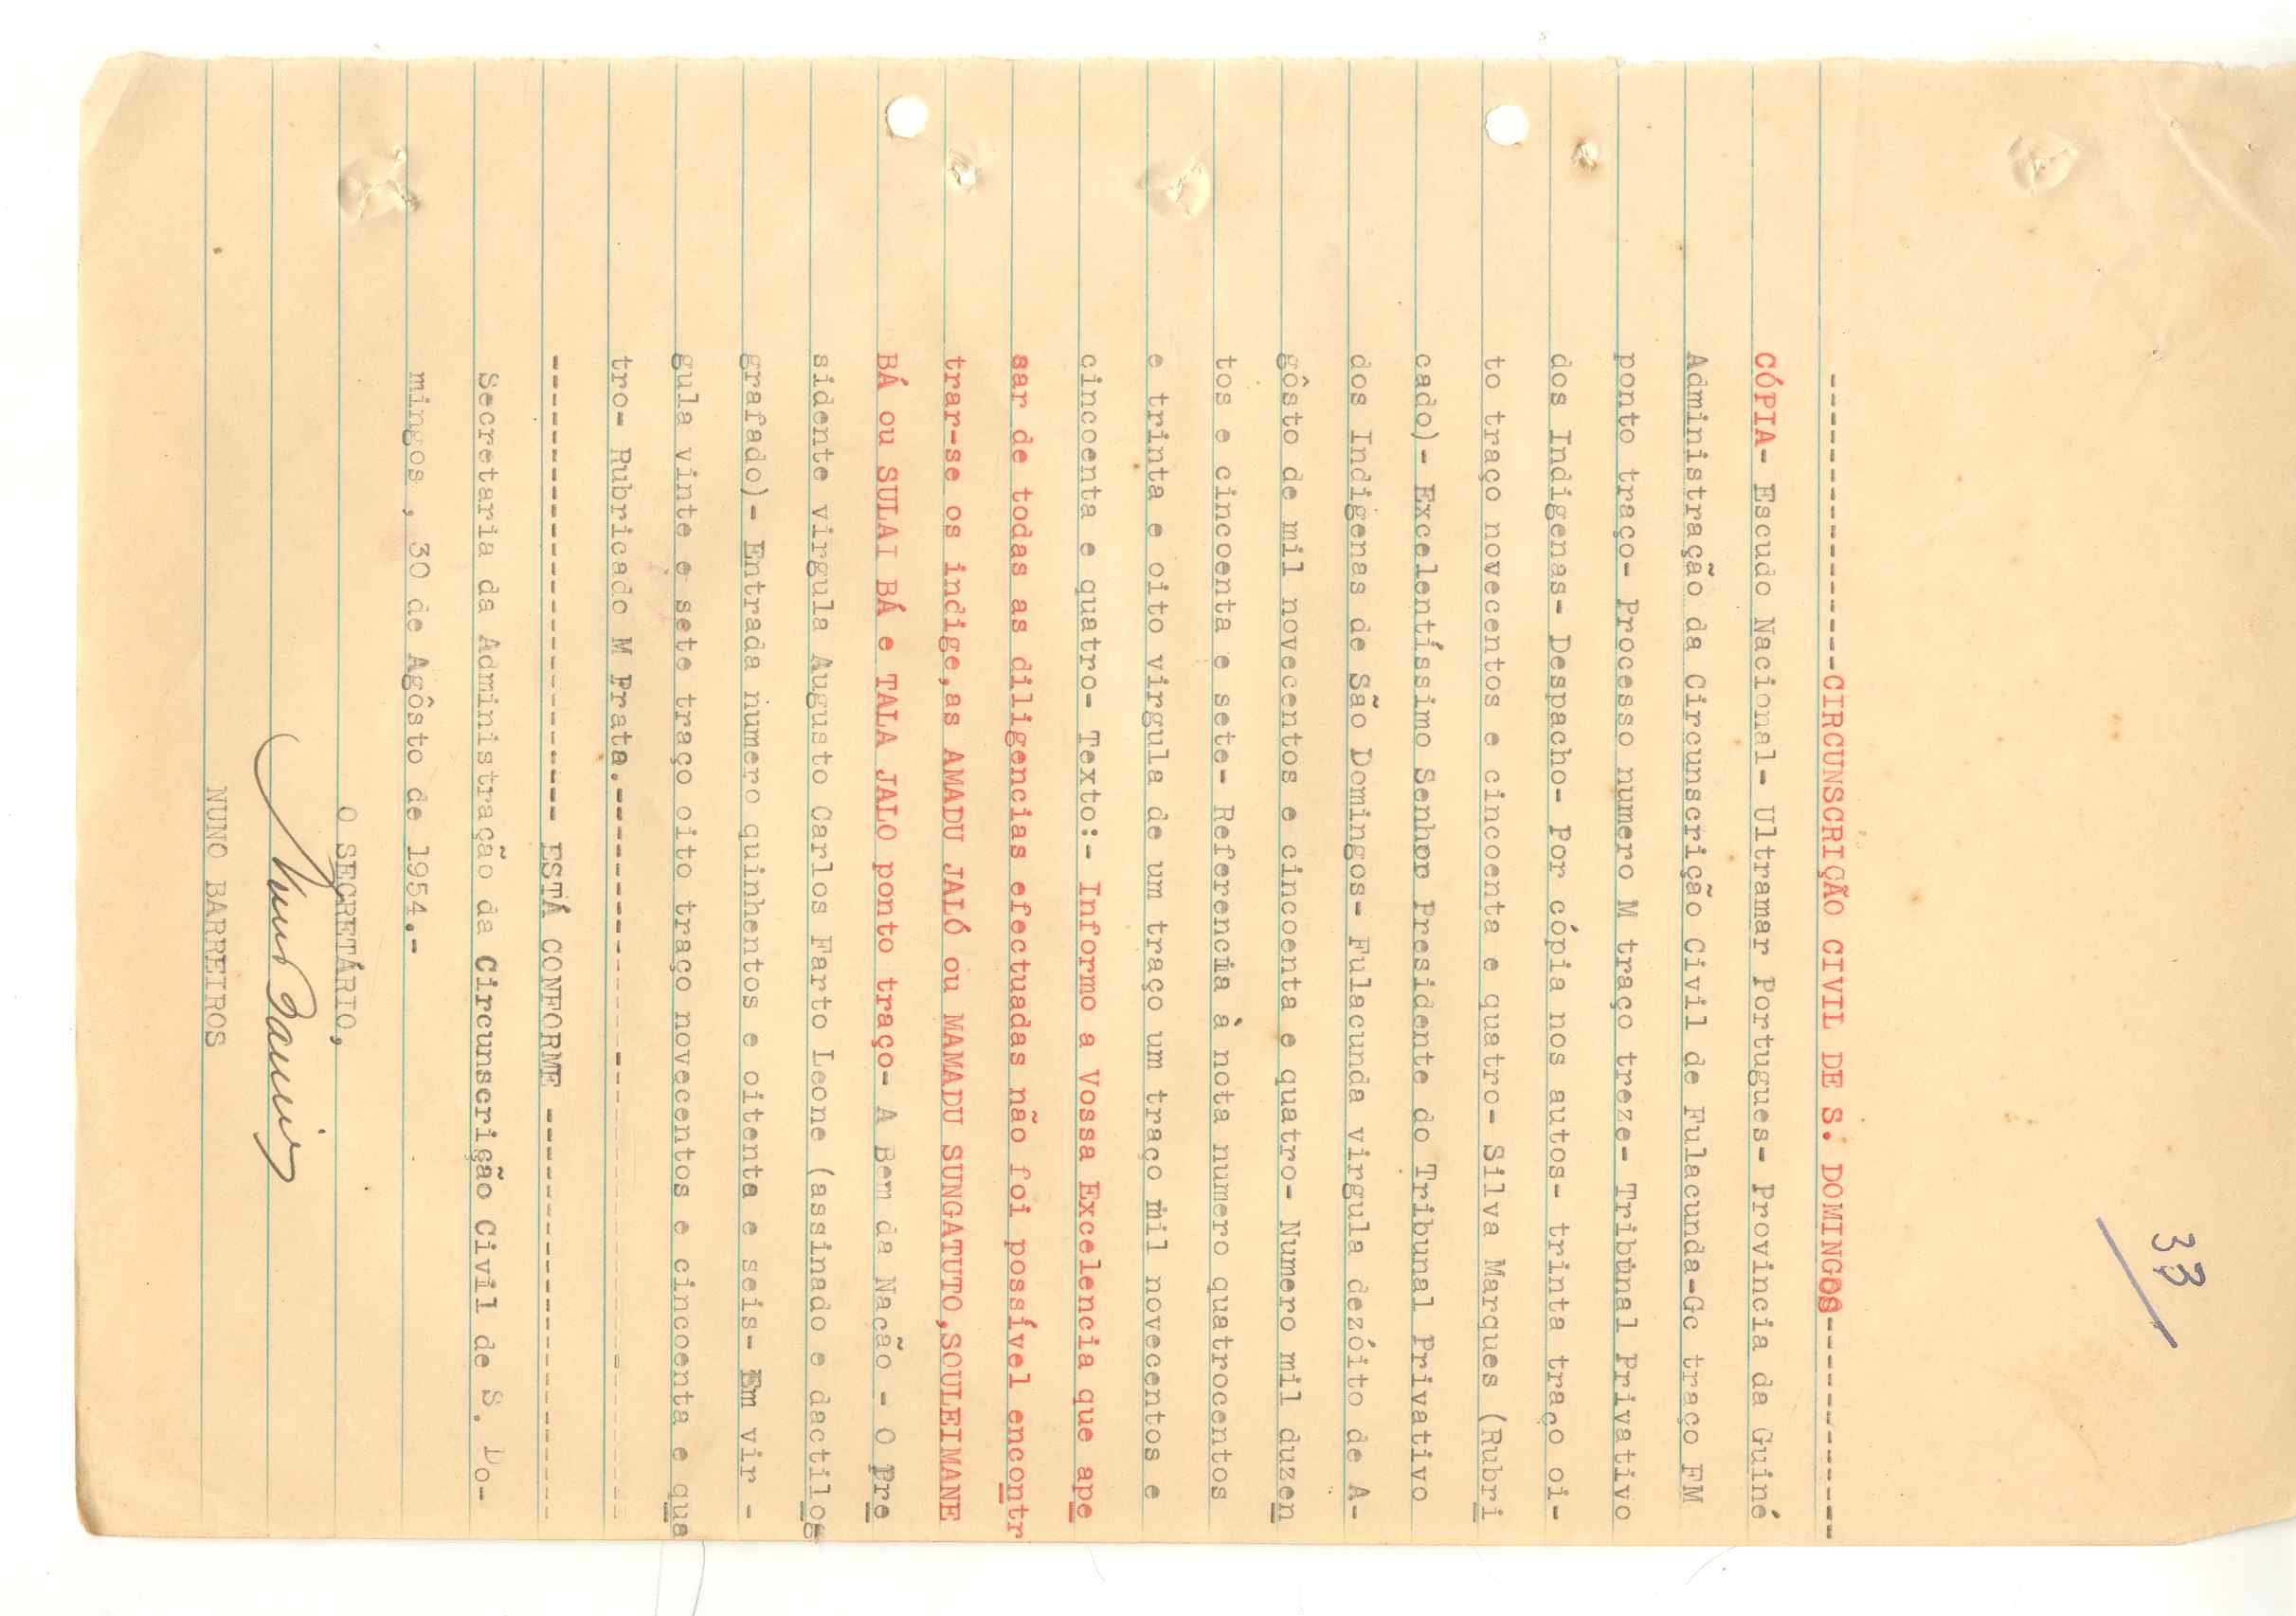 33
---------------------CIRCUNSCRIÇÃO CIVIL DE S. DOMINGOS----------------
CÓPIA- Escudo Nacional- Ultramar Portugues- Provincia da Guiné
Administração da Circunscrição Civil de Fulacunda-Gc traço FM
ponto traço- Processo numero M traço treze- Tribunal Privativo
dos Indigenas- Despacho- Por cópia nos autos- trinta traço oi-
to traço novecentos e cincoenta e quatro- Silva Marques (Rubri
cado)- Excelentíssimo Senhor Presidente do Tribunal Privativo
dos Indigenas de São Domingos- Fulacunda virgula dezóito de A-
gôsto de mil novecentos e cincoenta e quatro- Numero mil duzen
tos e cincoenta e sete- Referencia à nota numero quatrocentos
e trinta e oito virgula de um traço um traço mil novecentos e
cincoenta e quatro- Texto:- Informo a Vossa Excelencia que ape
sar de todas as diligencias efectuadas não foi possível encontr
trar-se os indige,as AMADU JALÓ ou MAMADU SUNGATUTO,SOULEIMANE
BÁ ou SULAI BÁ e TALA JALO ponto traço- A Bem da Nação - O Pre
sidente virgula Augusto Carlos Farto Leone (assinado e dactilog
grafado)- Entrada numero quinhentos e oitenta e seis- Em vir -
gula vinte e sete traço oito traço novecentos e cincoenta e qua
tro- Rubricado M Prata.-----------------------------------------
--------------------------------- ESTÁ CONFORME -----------------------------
Secretaria da Administração da Circunscrição Civil de S. Do-
mingos , 30 de Agôsto de 1954.-
O SECRETÁRIO,
Nuno Barreiros
NUNO BARREIROS